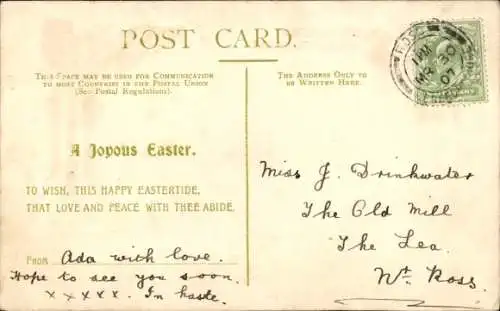 POST CARD.
THIS SPACE MAY BE USED FOR COMMUNICATION
TO MOST COUNTRIES IN THE POSTAL UNION
(See Postal Regulations).
THE ADDRESS ONLY TO
BE WRITTEN HERE.
A Joyous Easter.
TO WISH, THIS HAPPY EASTERTIDE,
THAT LOVE AND PEACE WITH THEE ABIDE.
FROM Ada with love.
Hope to see you soon.
x x x x x. In haste.
Miss J. Drinkwater
The Old Mill
The Lea.
Nt Ross.
MR 30
07